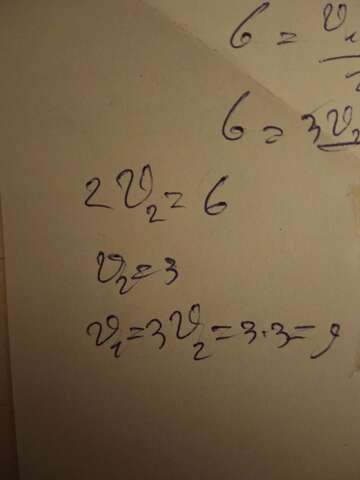 6 = v₁
6 = 3v₂
2v₂ = 6
v₂ = 3
v₁ = 3v₂ = 3·3 = 9